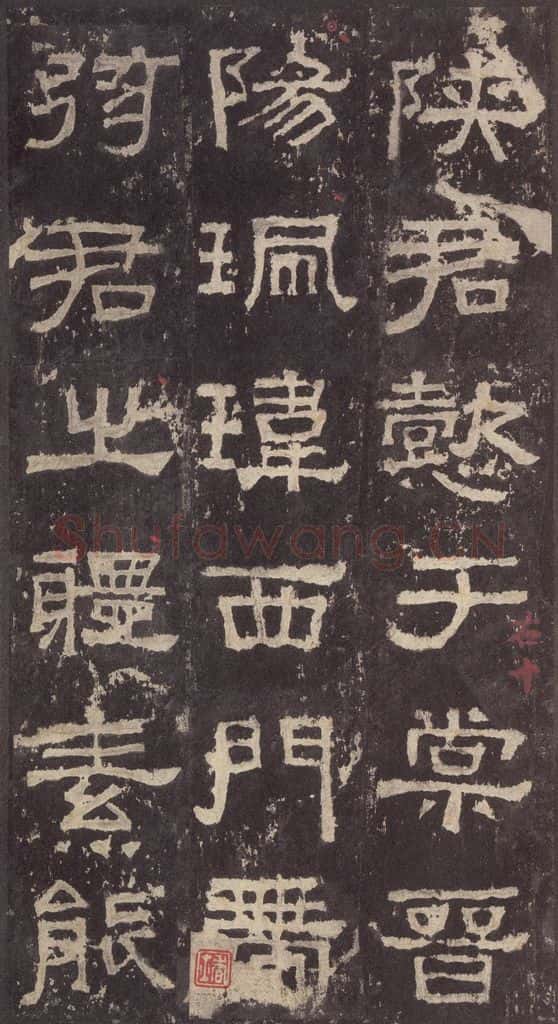 陝君懿于棠晉
陽珮瑋西門帶
弦君之體素能
Shufawang.CN